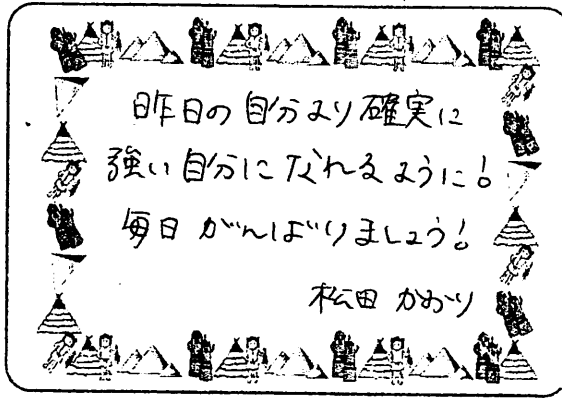 昨日の自分より確実に
強い自分になれるように!
毎日がんばりましょう!
松田 かおり